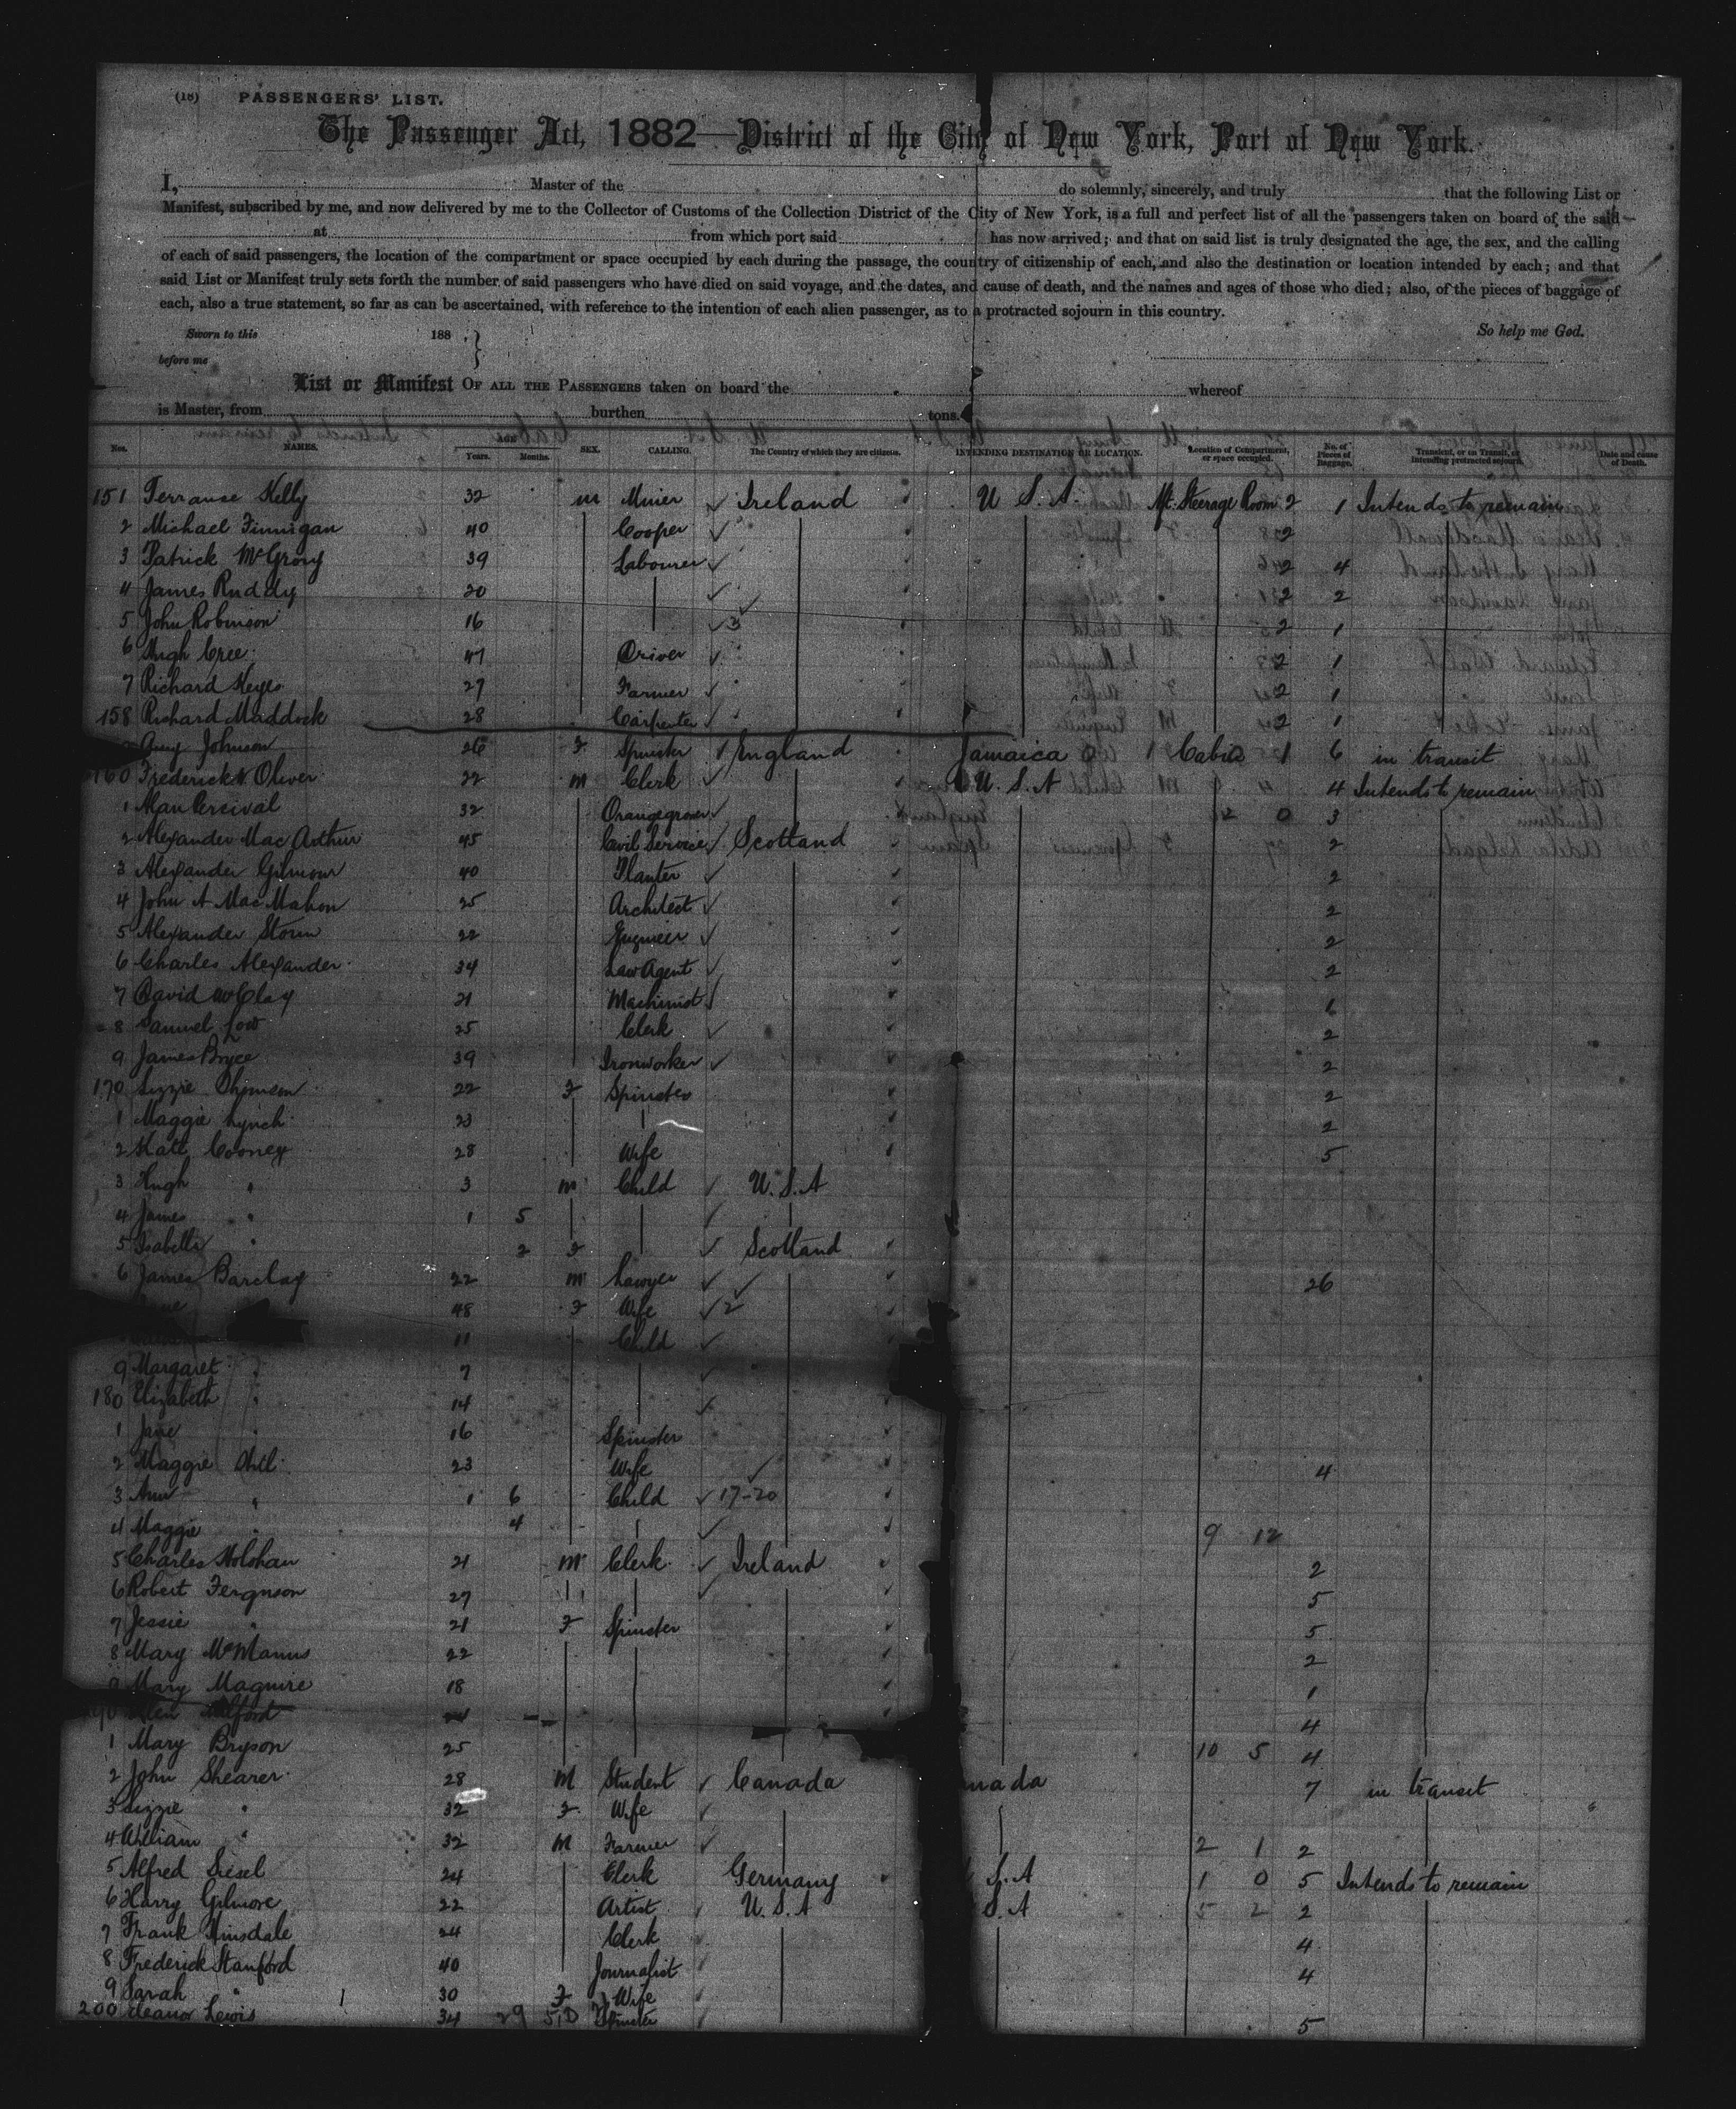 (18) PASSENGERS' LIST.
The Passenger Act, 1882—District of the City of New York, Port of New York.
I, Master of the do solemnly, sincerely, and truly that the following List or
Manifest, subscribed by me, and now delivered by me to the Collector of Customs of the Collection District of the City of New York, is a full and perfect list of all the passengers taken on board of the said
at from which port said has now arrived; and that on said list is truly designated the age, the sex, and the calling
of each of said passengers, the location of the compartment or space occupied by each during the passage, the country of citizenship of each, and also the destination or location intended by each; and that
said List or Manifest truly sets forth the number of said passengers who have died on said voyage, and the dates, and cause of death, and the names and ages of those who died; also, of the pieces of baggage of
each, also a true statement, so far as can be ascertained, with reference to the intention of each alien passenger, as to a protracted sojourn in this country.
Sworn to this 188 . } So help me God.
before me
List or Manifest OF ALL THE PASSENGERS taken on board the whereof
is Master, from burthen tons.
Nos. NAMES. AGE Years. Months. SEX. CALLING. The Country of which they are citizens. INTENDING DESTINATION OR LOCATION. Location of Compartment, or space occupied. No. of Pieces of Baggage. Transient, or on Transit, or Intending protracted sojourn. Date and cause of Death.
151 Terranse Kelly 32 m Miner Ireland U S. A. Steerage Room 2 1 Intends to remain
2 Michael Finnigan 40 Cooper 2
3 Patrick McGrory 39 Labourer 2 4
4 James Ruddy 20 2 2
5 John Robinson 16 3 2 1
6 Hugh Cree 47 Driver 2 1
7 Richard Keyes 27 Farmer 2 1
158 Richard Maddock 28 Carpenter 2 1
Amy Johnson 26 F Spinster England Jamaica Cabin 1 6 in transit
160 Frederick Oliver 22 m Clerk U. S. A 4 Intends to remain
1 Alan Percival 32 Orangegrower 12 0 3
2 Alexander Mac Arthur 45 Civil Service Scotland 2
3 Alexander Gilmour 40 Planter 2
4 John A MacMahon 25 Architect 2
5 Alexander Storm 22 Engineer 2
6 Charles Alexander 34 Law Agent 2
7 David Clay 21 Machinist 1
8 Samuel Low 25 Clerk 2
9 James Bryce 39 Ironworker 2
170 Lizzie 22 F Spinster 2
1 Maggie Lynch 23 2
2 Kate Cooney 28 Wife 5
3 Hugh " 3 m Child U. S. A
4 James " 1 5
5 Isabella " 2 F Scotland
6 James Barclay 22 m Lawyer 26
48 F Wife 2
11 Child
9 Margaret " 7
180 Elizabeth " 14
1 Jane " 16 Spinster
2 Maggie 23 Wife 4
3 Ann " 1 6 Child 17-20
4 Maggie " 4 9 12
5 Charles Holohan 21 m Clerk Ireland 2
6 Robert Ferguson 27 5
7 Jessie " 21 F Spinster 5
8 Mary McManus 22 2
9 Mary Maguire 18 1
90 4
1 Mary Bryson 25 10 5 4
2 John Shearer 28 M Student Canada nada 7 in transit
3 Lizzie " 32 F Wife
4 William " 32 M Farmer 2 1 2
5 Alfred Siesel 24 Clerk Germany S. A 1 0 5 Intends to remain
6 Harry Gilmore 22 Artist U. S. A S. A 5 2 2
7 Frank Hinsdale 24 Clerk 4
8 Frederick Stanford 40 Journalist 4
9 Sarah " 30 F Wife
200 Eleanor Lewis 34 29 Spinster 5